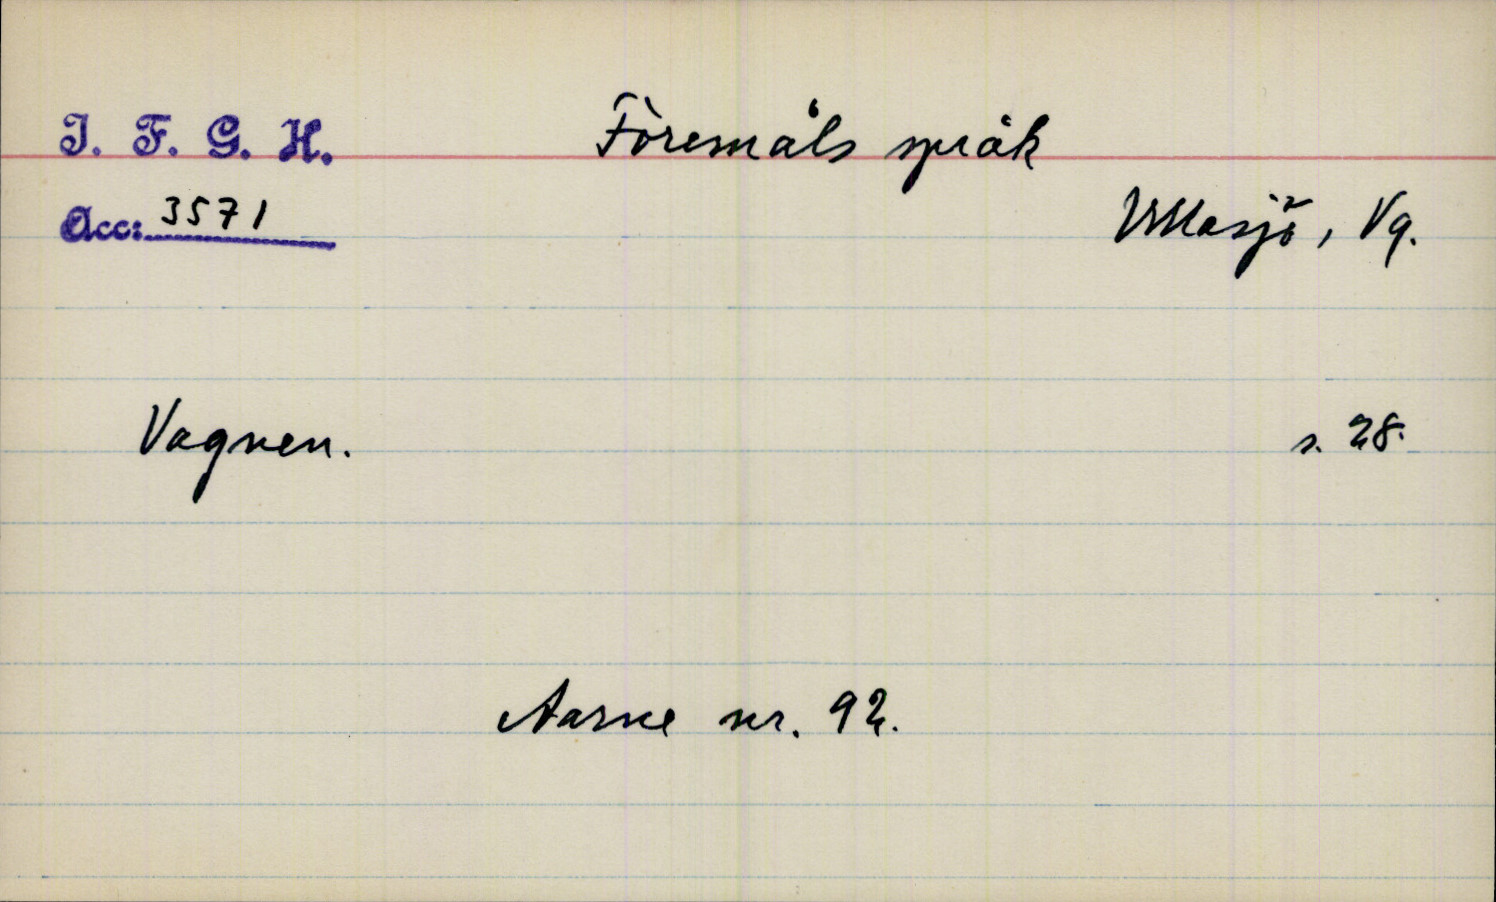 I. F. G. H.
Föremåls språk
Acc: 3571
Ullasjö, Vg.
Vagnen.
s. 28.
Aarne nr. 92.